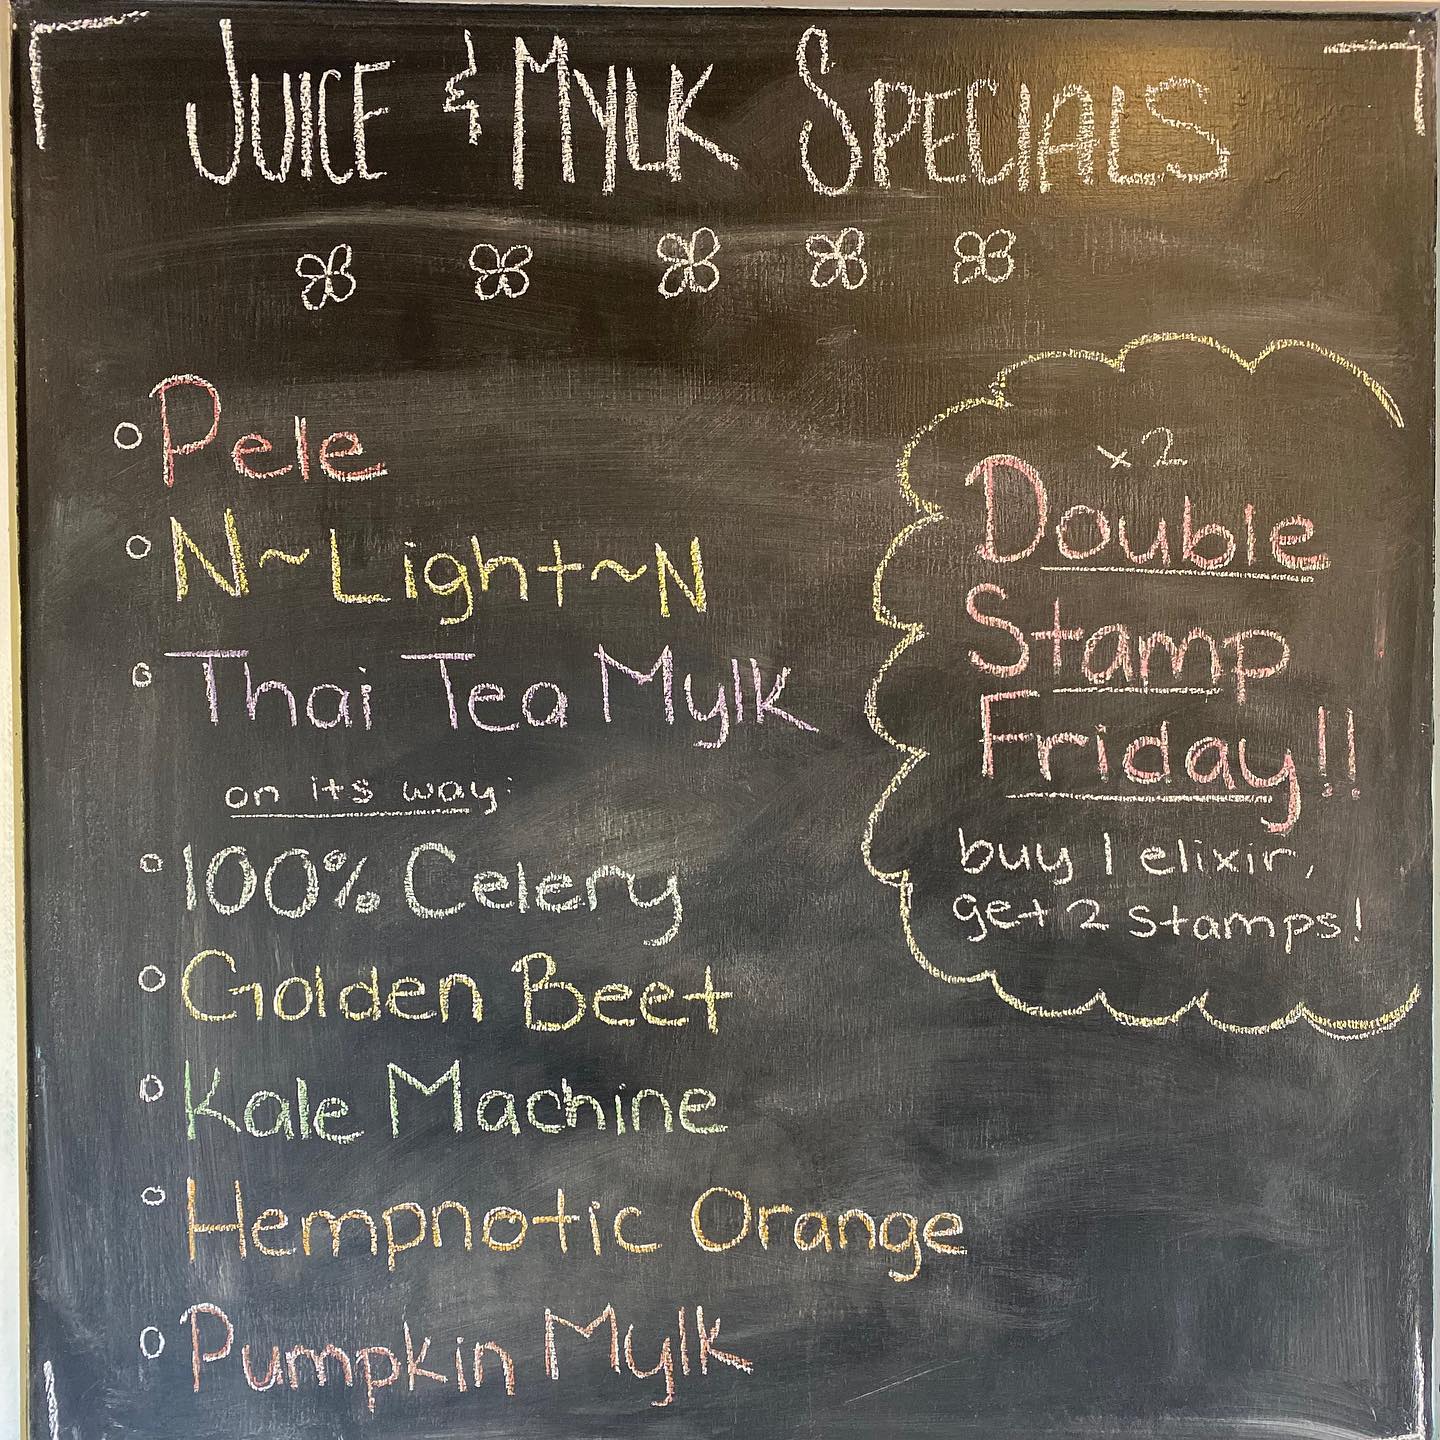 JUICE & MYLK SPECIALS
Pele
N~Light~N
Thai Tea Mylk
on its way:
100% Celery
Golden Beet
Kale Machine
Hempnotic Orange
Pumpkin Mylk
x2
Double
Stamp
Friday!!
buy 1 elixir,
get 2 stamps!